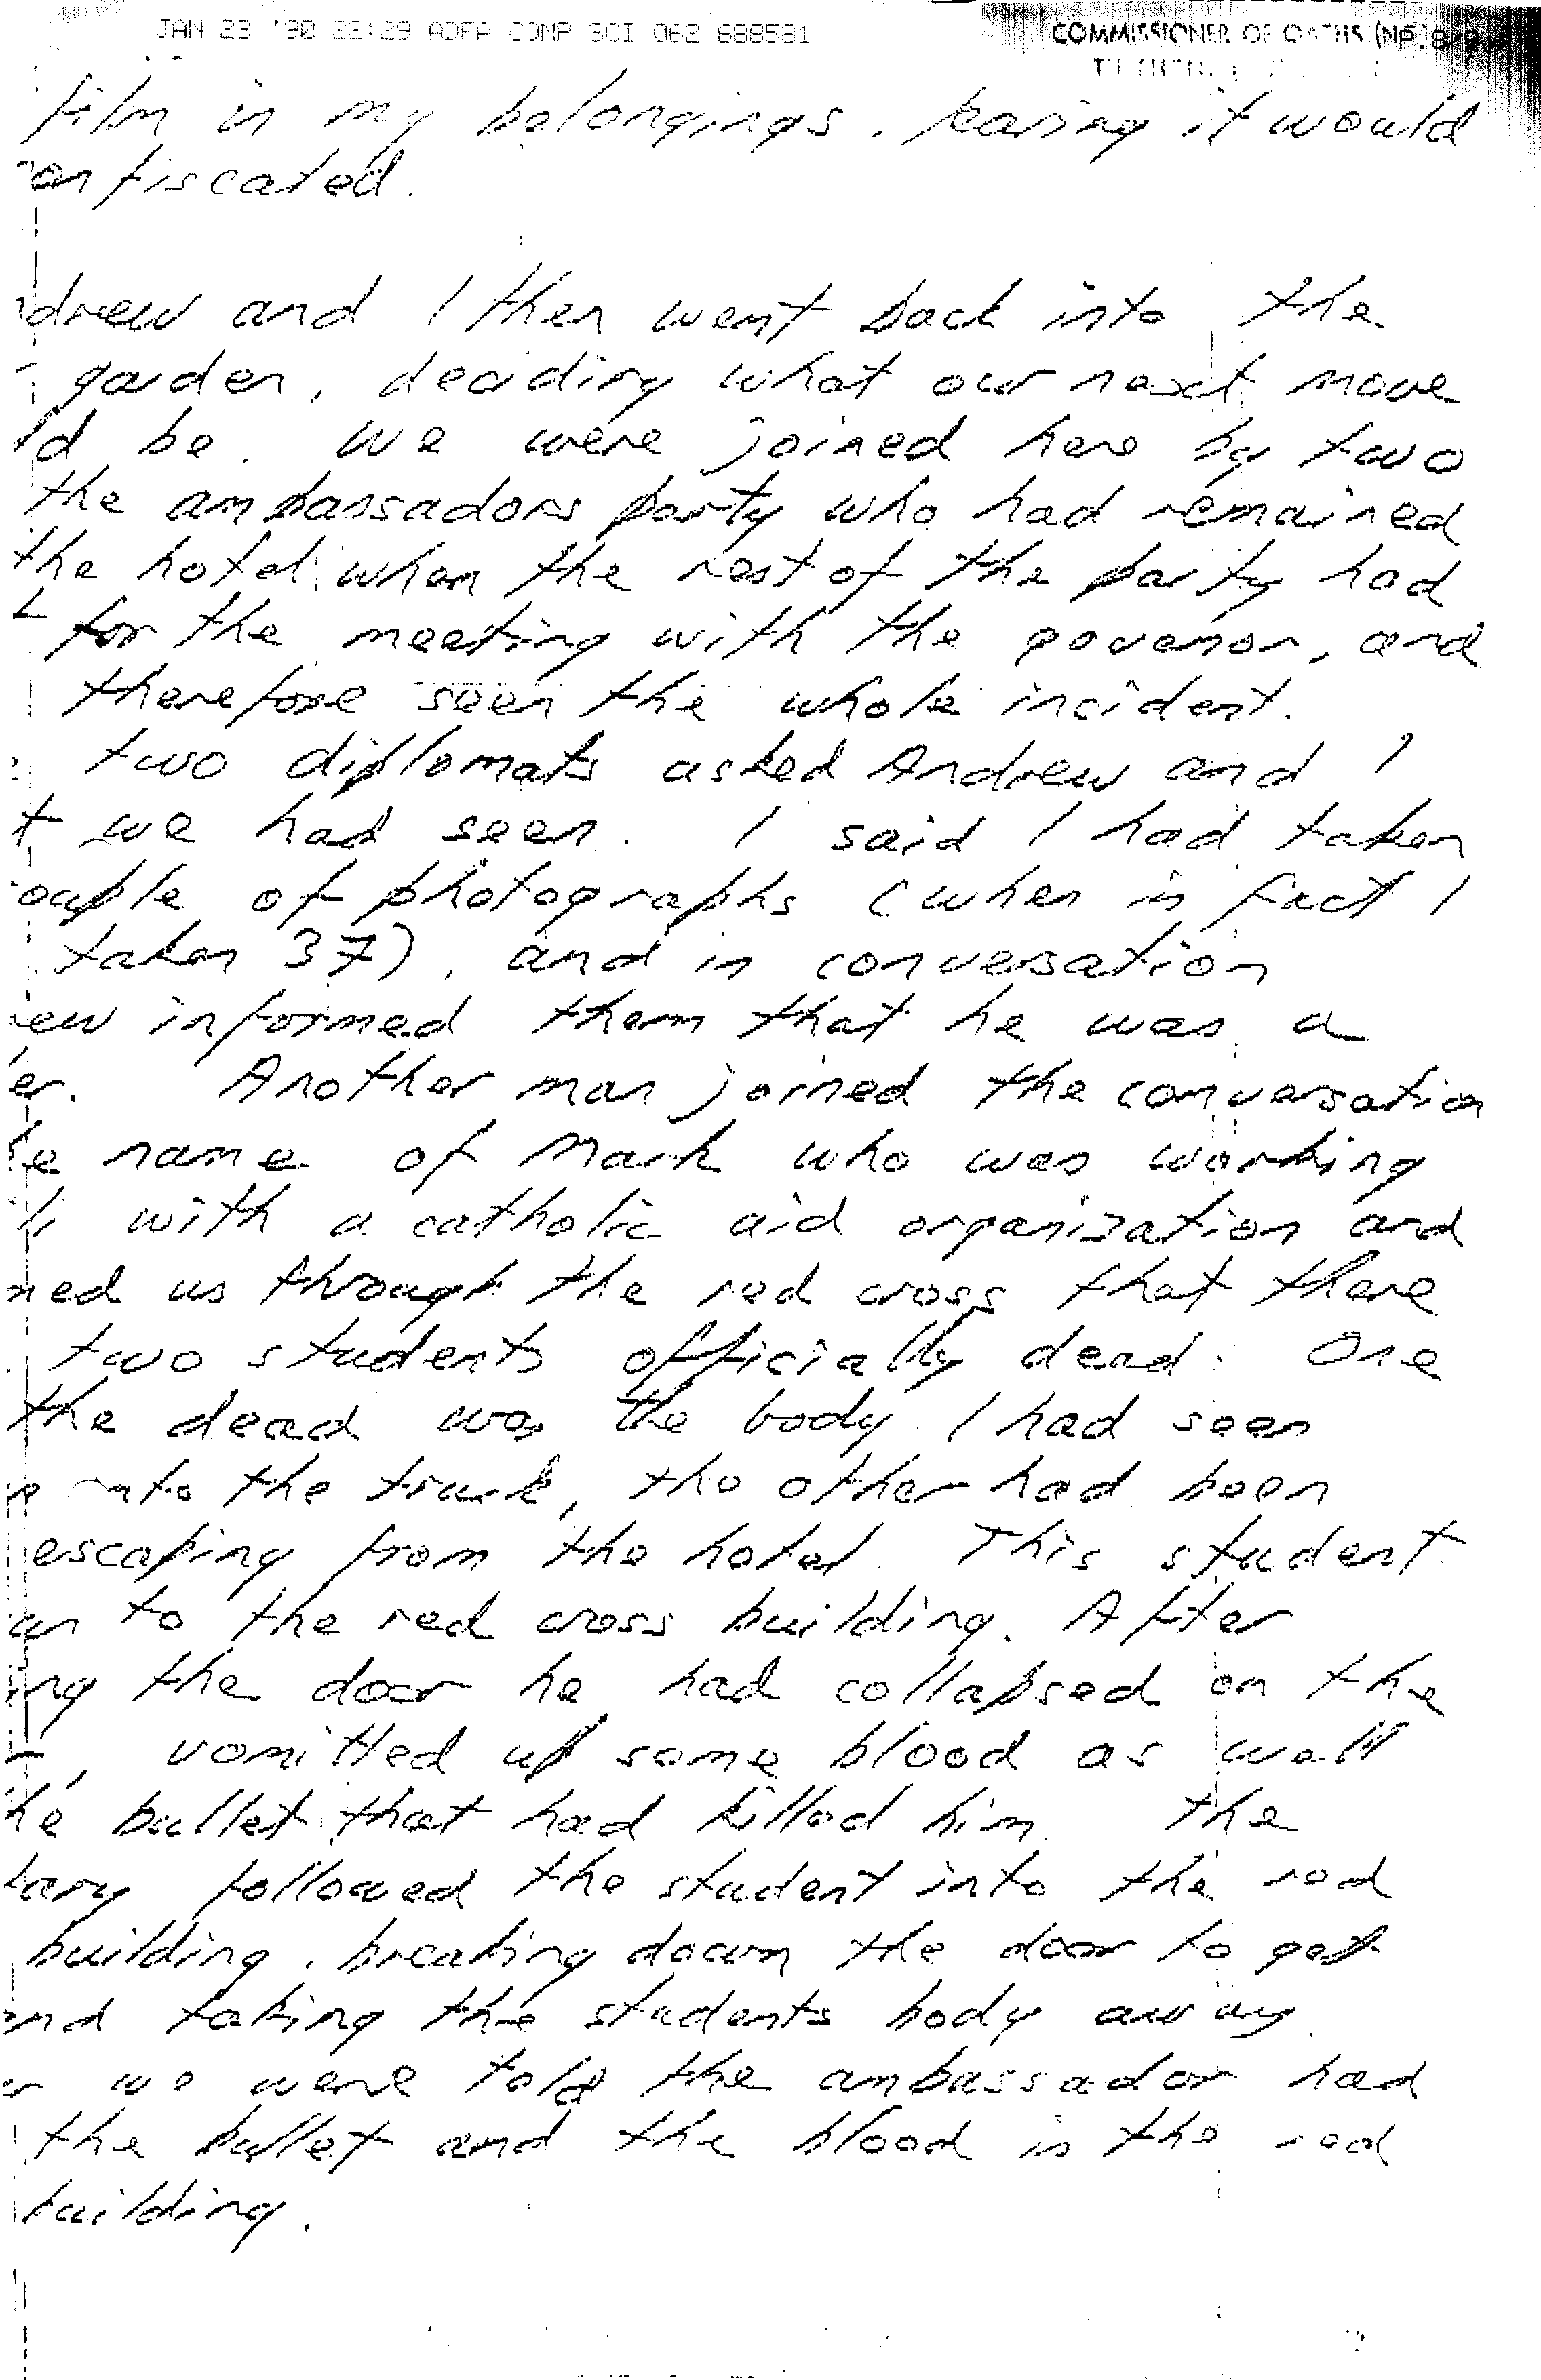 JAN 23 '90 22:29 ADFA COMP SCI 062 688581
COMMISSIONER OF OATHS (NP. 8/9
film in my belongings, fearing it would
onfiscated.
drew and I then went back into the
garden, deciding what our next move
ld be. We were joined here by two
the ambassadors party who had remained
the hotel when the rest of the party had
t for the meeting with the govenor, and
therefore seen the whole incident.
two diplomats asked Andrew and I
t we had seen. I said I had taken
ouple of photographs (when in fact I
taken 37), and in conversation
ew informed them that he was a
er. Another man joined the conversation
he name of Mark who was working
with a catholic aid organisation and
med us through the red cross that there
two students officially dead. One
the dead was the body I had seen
onto the truck, the other had been
escaping from the hotel. This student
an to the red cross building. After
ing the door he had collapsed on the
r, vomitted up some blood as well
he bullet that had killed him. The
tary followed the student into the red
building, breaking down the door to get
and taking the students body away.
er we were told the ambassador had
the bullet and the blood in the red
building.